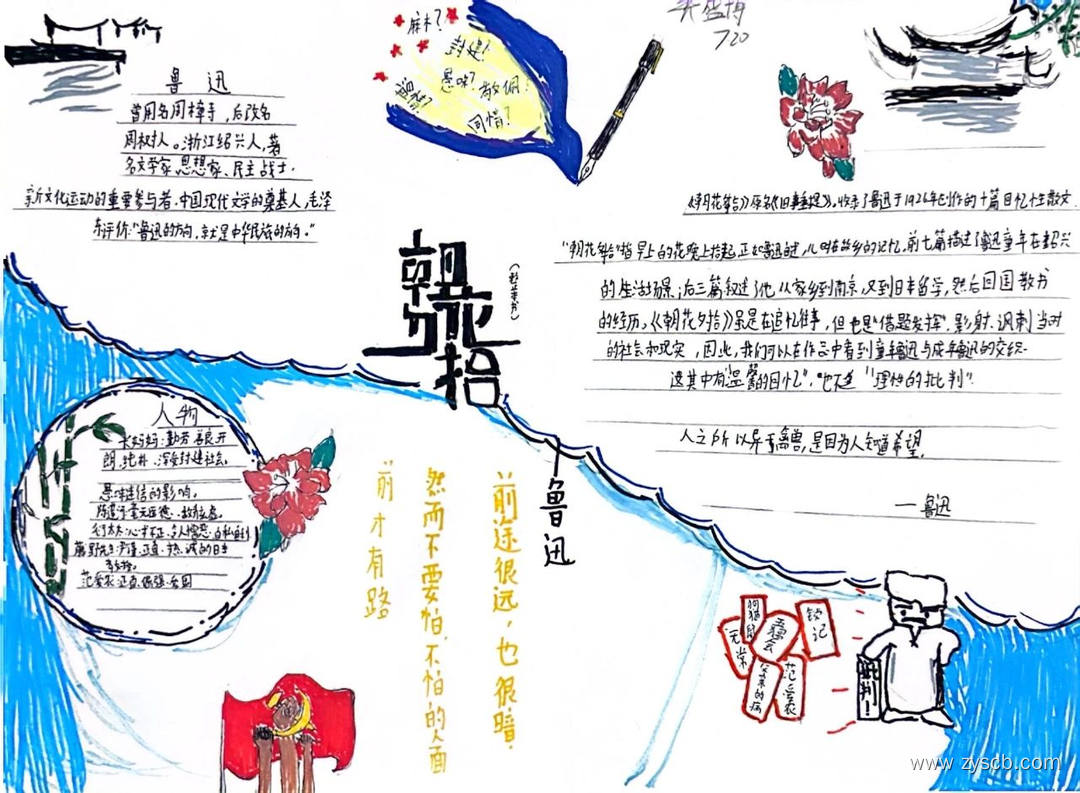 鲁迅
曾用名周樟寿，后改名
周树人。浙江绍兴人，著
名文学家 思想家、民主战士.
新文化运动的重要参与者.中国现代文学的奠基人,毛泽
东评价:"鲁迅的方向,就是中华民族的方向。"
麻木？
封建！
愚昧？
敬佩！
同情？
720
《朝花夕拾》原名《旧事重提》。收录了鲁迅于1926年创作的十篇回忆性散文.
"朝花夕拾"指早上的花晚上拾起,正如鲁迅
儿时在故乡的记忆.前七篇描述了鲁迅童年在绍兴
的生活场景;后三篇叙述了他从家乡到南京,又到日本留学,然后回国教书
的经历。《朝花夕拾》虽是在追忆往事，但也是"借题发挥"，影射、讽刺当时
的社会和现实，因此，我们可以在作品中看到童年鲁迅与成年鲁迅的交织.
这其中有"温馨的回忆"，也不乏"理性的批判".
人之所以异于禽兽,是因为人知道希望.
——鲁迅
朝花夕拾
人物
长妈妈:勤劳 善良 开
朗.纯朴.深受封建社会
愚昧迷信的影响。
衍太太:心术不正、
藤野先生:严谨、正直、热诚的日本
范爱农:正直 倔强 爱国
前途很远，也很暗.
然而不要怕，不怕的人面
前才有路
—鲁迅
狗猫鼠
五猖会
琐记
无常
父亲的病
范爱农
批判！
www.zyscb.com